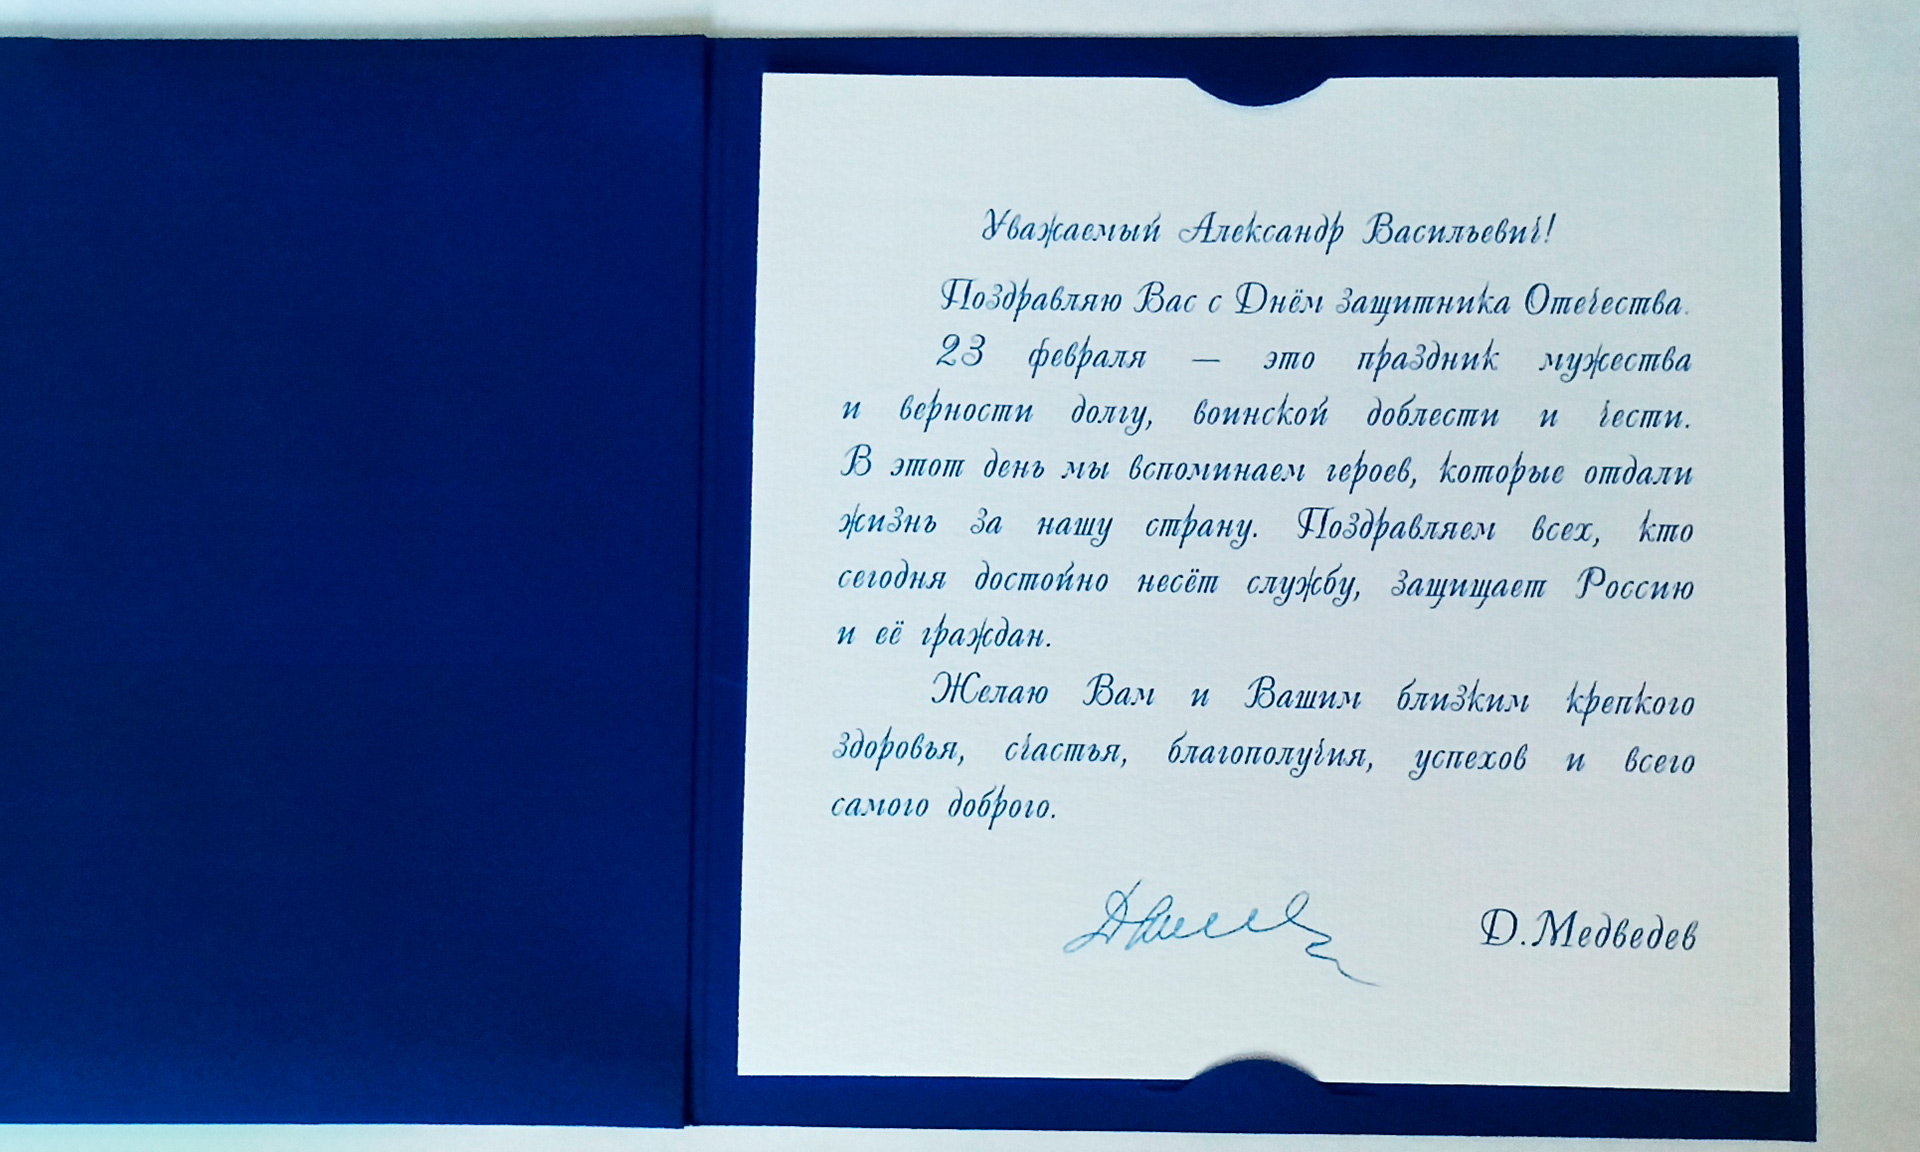 Уважаемый Александр Васильевич!
Поздравляю Вас с Днём защитника Отечества.
23 февраля — это праздник мужества
и верности долгу, воинской доблести и чести.
В этот день мы вспоминаем героев, которые отдали
жизнь за нашу страну. Поздравляем всех, кто
сегодня достойно несёт службу, защищает Россию
и её граждан.
Желаю Вам и Вашим близким крепкого
здоровья, счастья, благополучия, успехов и всего
самого доброго.
Д.Медведев